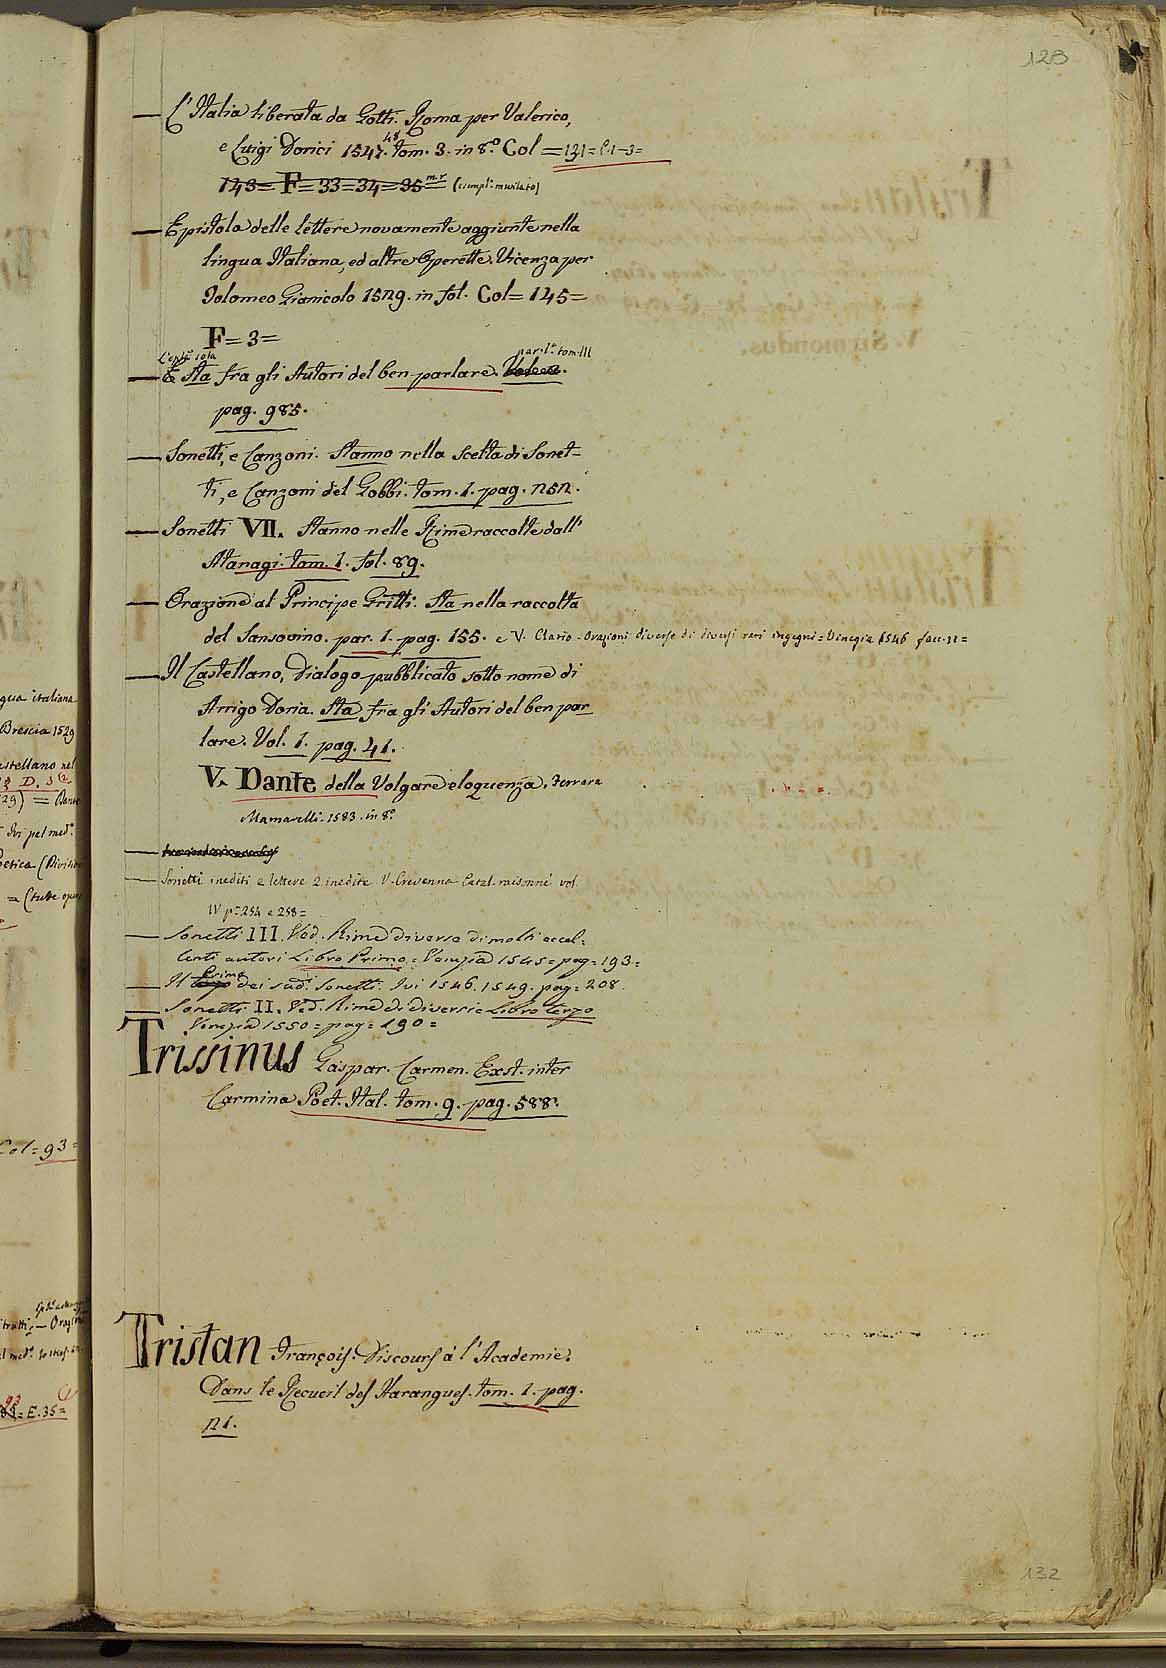 128
— L'Italia liberata da Gotti. Roma per Valerico,
e Luigi Dorici 1547. 48 tom. 3. in 8.° Col = 131 = C. 1-3 =
143 = F = 33 = 34 = 35 m.r (esempl: mutilato)
— Epistola delle lettere novamente aggiunte nella
lingua Italiana, ed altre Operette. Vicenza per
Tolomeo Gianicolo 1529. in fol. Col = 145 =
F = 3 =
L'epist.ª sola par. 1.ª tom. III
— E Sta fra gli Autori del ben parlare.
pag. 985.
— Sonetti, e Canzoni. Stanno nella Scelta di Sonet-
ti, e Canzoni del Gobbi. tom. 1. pag. 252.
— Sonetti VII. Stanno nelle Rime raccolte dall'
Atanagi. tom. 1. fol. 89.
— Orazione al Principe Gritti. Sta nella raccolta
del Sansovino. par. 1. pag. 155. e V. Clario - Orazioni diverse di diversi rari ingegni = Venegia 1546 facc. 11 =
— Il Castellano, Dialogo pubblicato sotto nome di
Arrigo Doria. Sta fra gli Autori del ben par_
lare. Vol. 1. pag. 41.
V. Dante della Volgare eloquenza. Ferrara
Mamarelli. 1583. in 8.°
—
— Sonetti inediti e lettere 2 inedite V. Crevenna Catal. raisonné vol.
IV p.e 254 e 258 =
— Sonetti III. Ved. Rime diverse di molti eccel-
lenti autori Libro Primo = Venezia 1545 = pag = 193 =
— Il Primo dei sud.i Sonetti. Ivi 1546. 1549. pag = 208.
— Sonetti II. Ved. Rime di diversi e Libro terzo
Venezia 1550 = pag = 190 =
Trissinus Gaspar. Carmen. Exst. inter
Carmina Poet. Ital. tom. 9. pag. 588.
Tristan François. Discours à l'Academie.
Dans le Recueil des Harangues. tom. 1. pag.
21.
132
gua italiana
Brescia 1529
astellano nel
D. 3
29) = Dante
Ivi pel med.°
oetica (Divisi
= (tutte oper
Col = 93 =
= E. 35 =